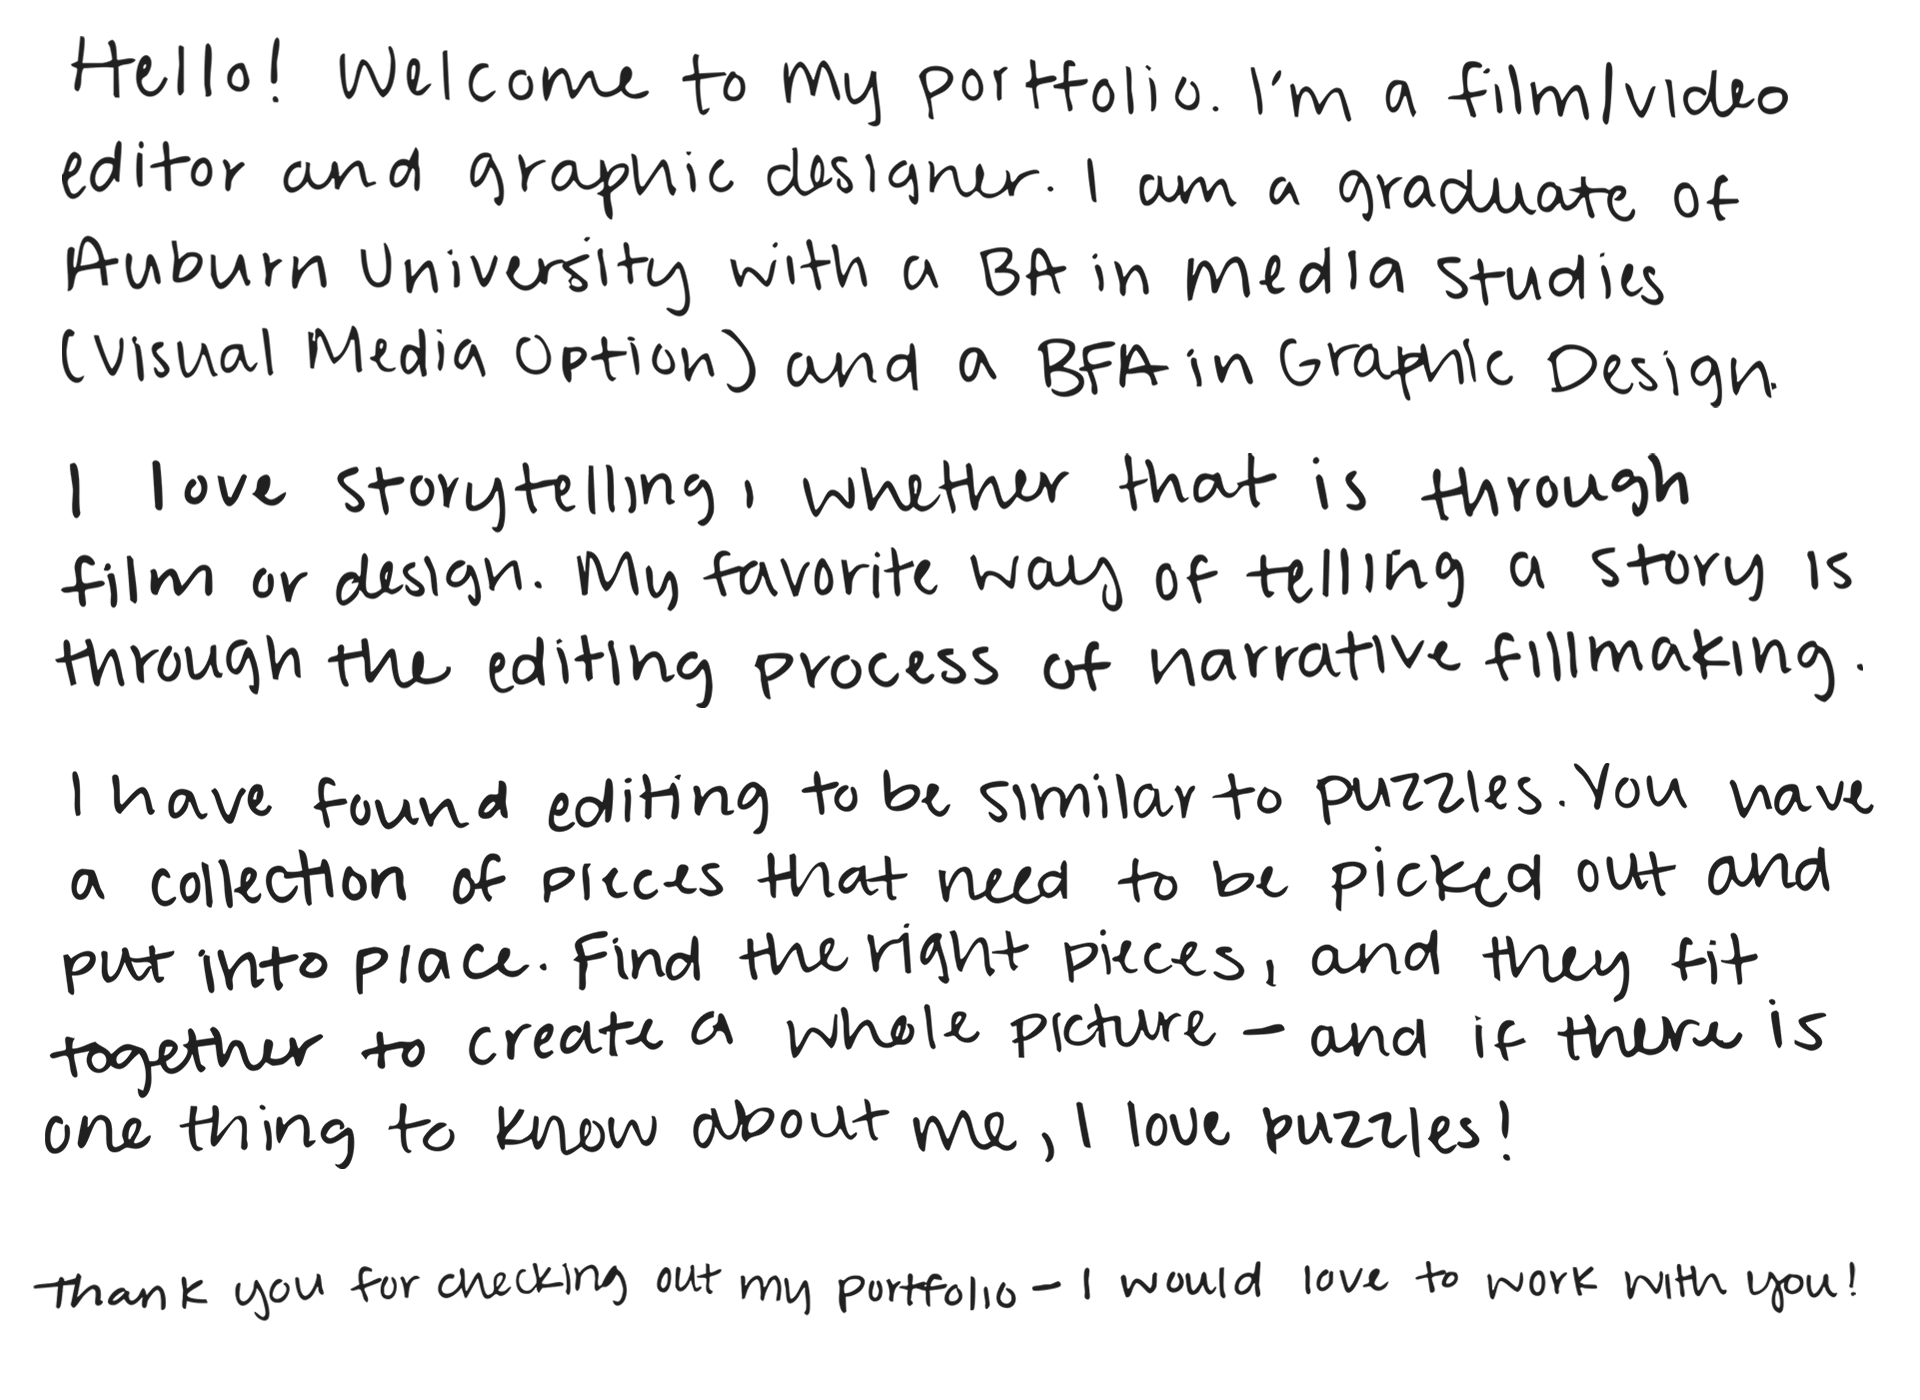 Hello! Welcome to my portfolio. I'm a film/video
editor and graphic designer. I am a graduate of
Auburn University with a BA in media studies
(Visual Media Option) and a BFA in Graphic Design.
I love storytelling, whether that is through
film or design. My favorite way of telling a story is
through the editing process of narrative fillmaking.
I have found editing to be similar to puzzles. You have
a collection of pieces that need to be picked out and
put into place. Find the right pieces, and they fit
together to create a whole picture – and if there is
one thing to know about me, I love puzzles!
Thank you for checking out my portfolio – I would love to work with you!